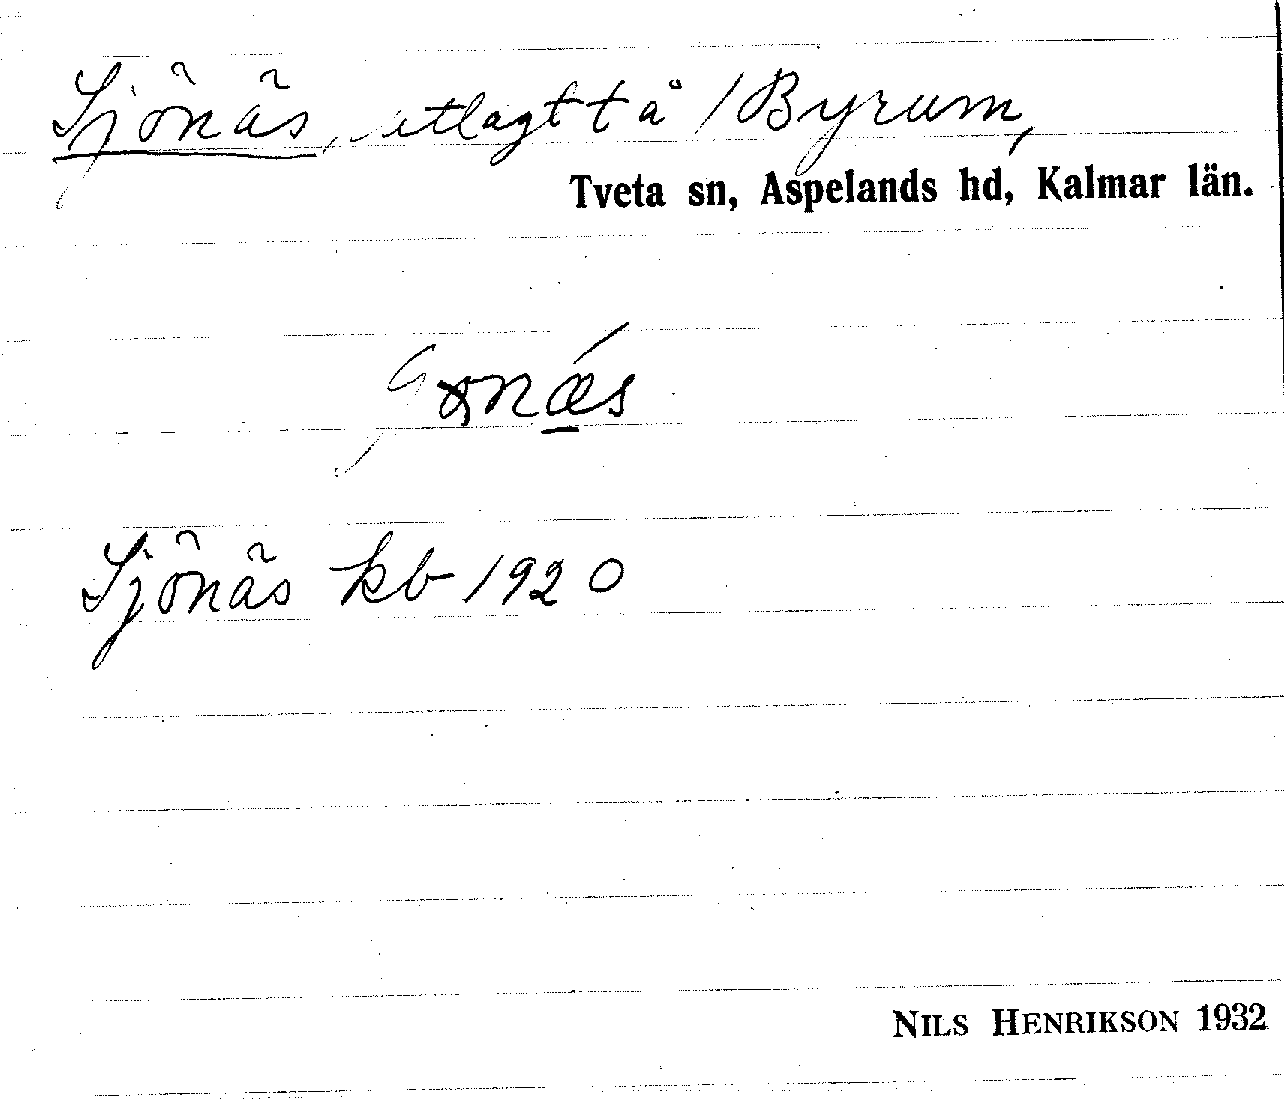 Sjönäs, utlagt t å /Byrum,
Tveta sn, Aspelands hd, Kalmar län.
Sjönäs kb 1920
NILS HENRIKSON 1932